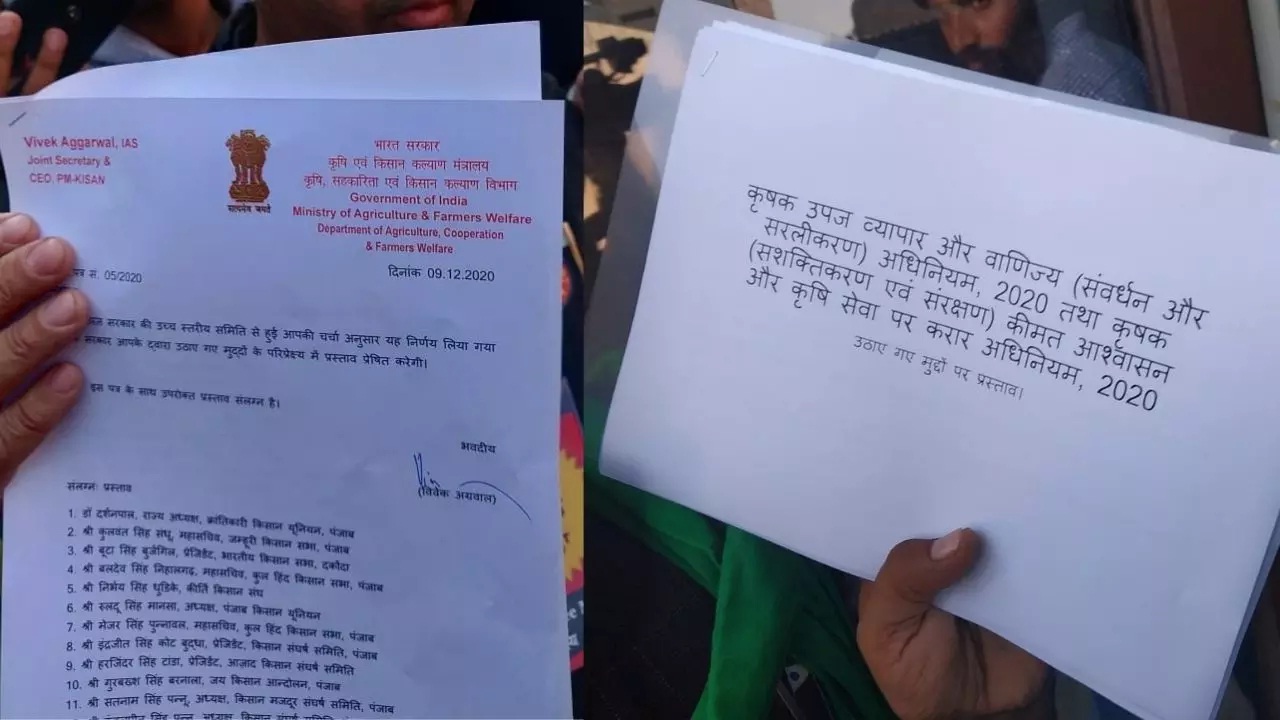 Vivek Aggarwal, IAS
Joint Secretary &
CEO, PM-KISAN
सत्यमेव जयते
भारत सरकार
कृषि एवं किसान कल्याण मंत्रालय
कृषि, सहकारिता एवं किसान कल्याण विभाग
Government of India
Ministry of Agriculture & Farmers Welfare
Department of Agriculture, Cooperation
& Farmers Welfare
पत्र सं. 05/2020
दिनांक 09.12.2020
सरकार की उच्च स्तरीय समिति से हुई आपकी चर्चा अनुसार यह निर्णय लिया गया
सरकार आपके द्वारा उठाए गए मुद्दों के परिप्रेक्ष्य में प्रस्ताव प्रेषित करेगी।
इस पत्र के साथ उपरोक्त प्रस्ताव संलग्न है।
भवदीय
(विवेक अग्रवाल)
संलग्नः प्रस्ताव
1. डॉ दर्शनपाल, राज्य अध्यक्ष, क्रांतिकारी किसान यूनियन, पंजाब
2. श्री कुलवंत सिंह संधू, महासचिव, जम्हूरी किसान सभा, पंजाब
3. श्री बूटा सिंह बुर्जगिल, प्रेजिडेंट, भारतीय किसान सभा, दकौंदा
4. श्री बलदेव सिंह निहालगढ़, महासचिव, कुल हिंद किसान सभा, पंजाब
5. श्री निर्भय सिंह धुडिके, कीर्ति किसान संघ
6. श्री रुलदू सिंह मानसा, अध्यक्ष, पंजाब किसान यूनियन
7. श्री मेजर सिंह पुन्नावल, महासचिव, कुल हिंद किसान सभा, पंजाब
8. श्री इंद्रजीत सिंह कोट बुद्धा, प्रेजिडेंट, किसान संघर्ष समिति, पंजाब
9. श्री हरजिंदर सिंह टांडा, प्रेजिडेंट, आज़ाद किसान संघर्ष समिति
10. श्री गुरबख्श सिंह बरनाला, जय किसान आन्दोलन, पंजाब
11. श्री सतनाम सिंह पन्नू, अध्यक्ष, किसान मजदूर संघर्ष समिति, पंजाब
कृषक उपज व्यापार और वाणिज्य (संवर्धन और
सरलीकरण) अधिनियम, 2020 तथा कृषक
(सशक्तिकरण एवं संरक्षण) कीमत आश्वासन
और कृषि सेवा पर करार अधिनियम, 2020
उठाए गए मुद्दों पर प्रस्ताव।